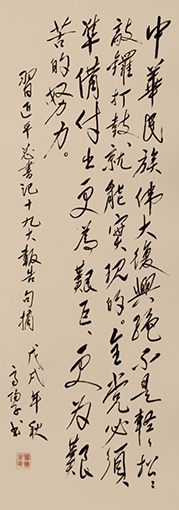 中華民族偉大復興絶不是輕輕松松、
敲鑼打鼓就能實現的。全党必須
準備付出更為艱巨、更为艱
苦的努力。
習近平总書记十九大報告句摘
戊戌年秋